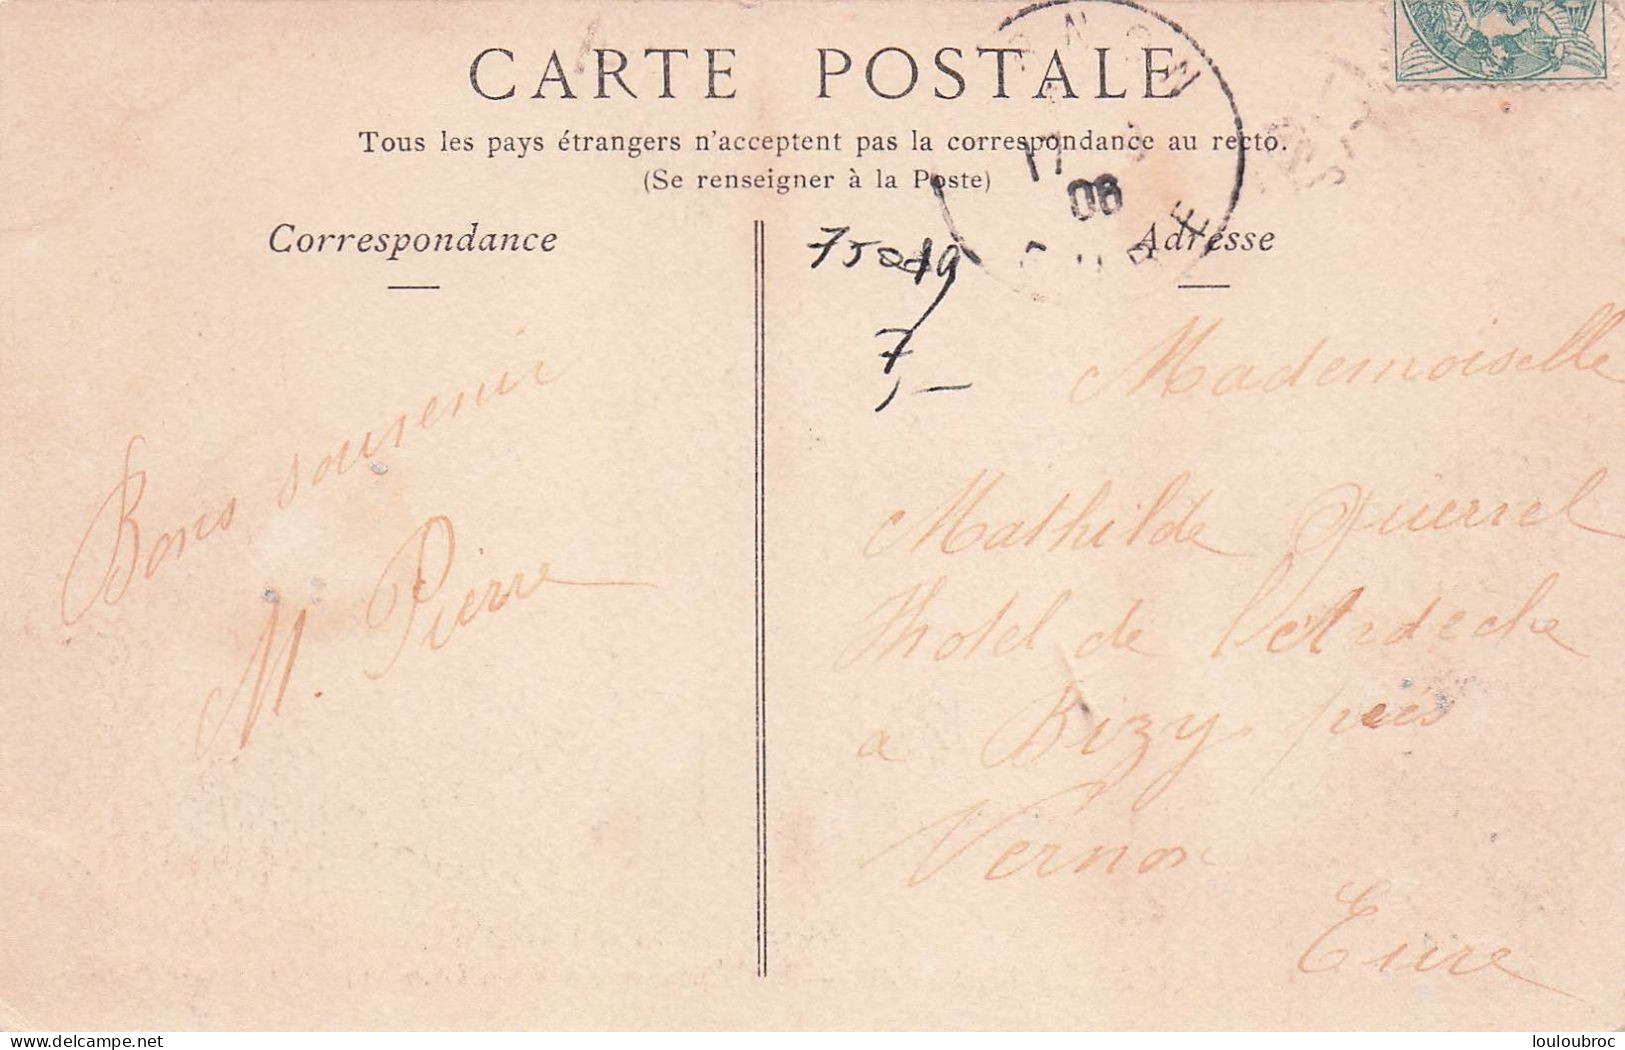 CARTE POSTALE
Tous les pays étrangers n'acceptent pas la correspondance au recto.
(Se renseigner à la Poste)
Correspondance
Adresse
17
08
75019
7,-
Bons souvenir
M. Pierre
Mademoiselle
Mathilde Quierrel
Hotel de l'Ardeche
a Bizy près
Vernon
Eure
delcampe.net
louloubroc